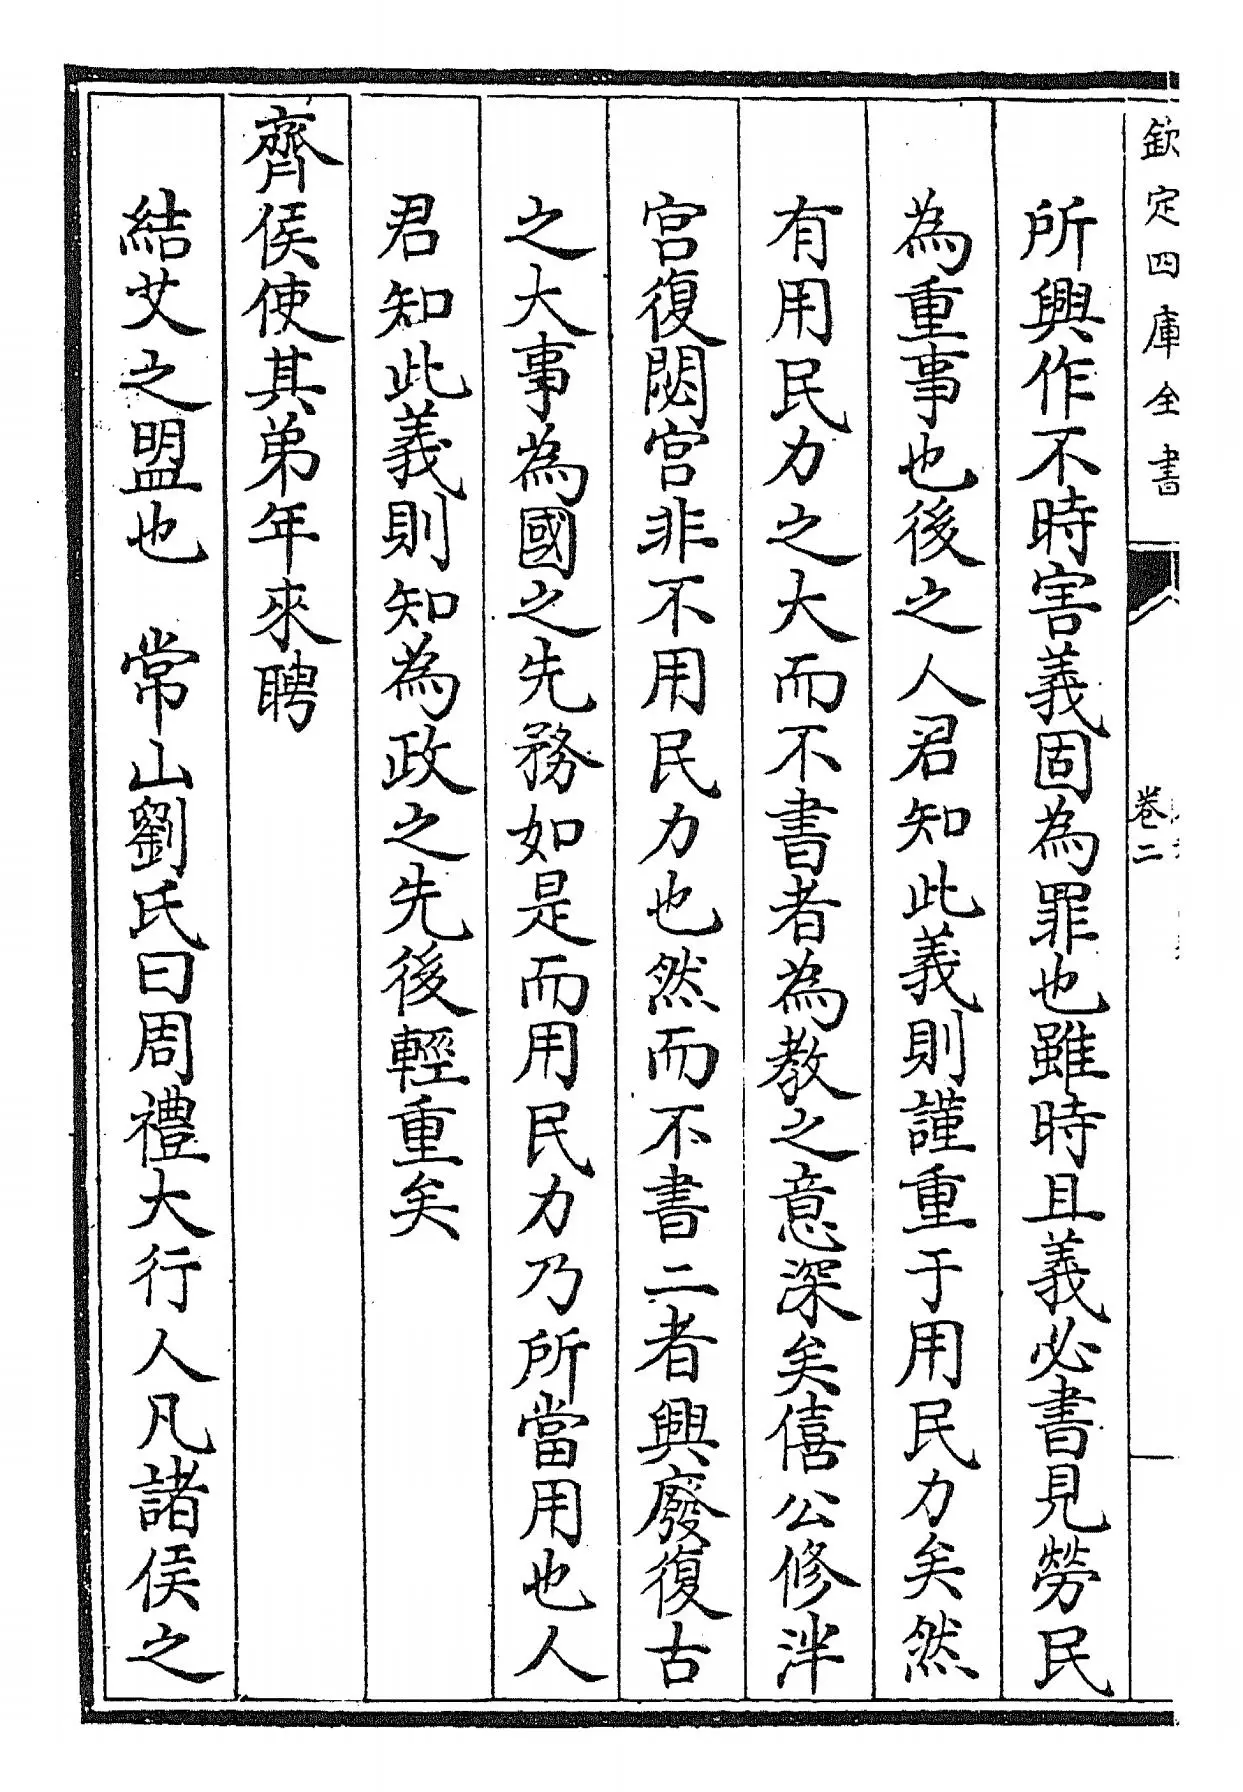 欽定四庫全書
卷二
所興作不時害義固為罪也雖時且義必書見勞民
為重事也後之人君知此義則謹重于用民力矣然
有用民力之大而不書者為教之意深矣僖公修泮
宫復閟宫非不用民力也然而不書二者興廢復古
之大事為國之先務如是而用民力乃所當用也人
君知此義則知為政之先後輕重矣
齊侯使其弟年來聘
結艾之盟也　常山劉氏曰周禮大行人凡諸侯之